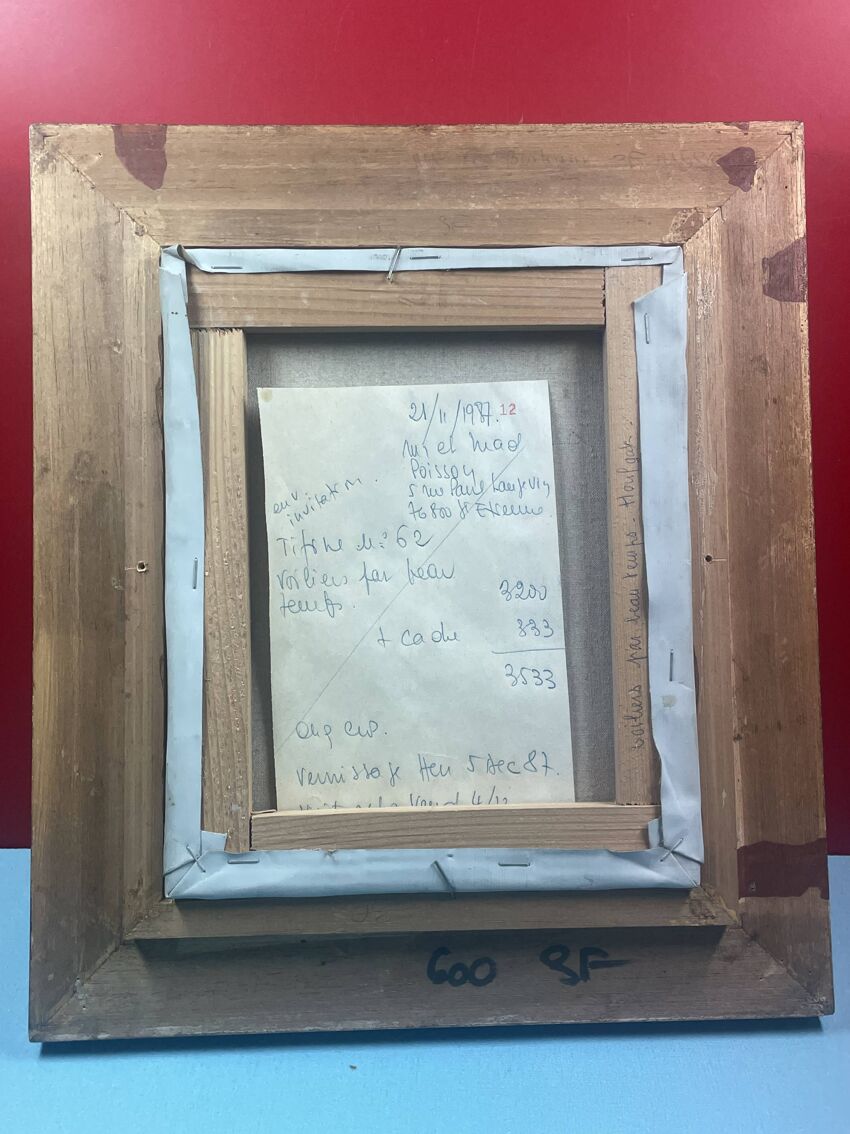 21/11/1987. 12
Mr et Mad
Poisson
5 rue Paul Langevin
76800 St Etienne.
env
invitation.
Tifone N° 62
Voiliers par beau
temps.
3200
+ cadre 333
3533
Vernissage Hen 5 dec 87.
Vend 4/12
voiliers par beau temps - Honfleur.
600 SF